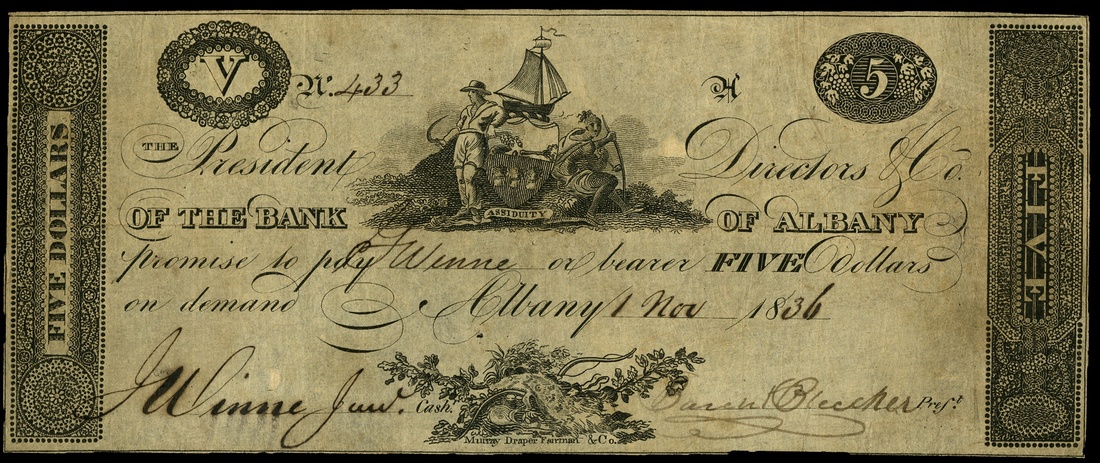 V
Nº. 433
A
5
THE President Directors & Co.
OF THE BANK OF ALBANY
ASSIDUITY
promise to pay J Winne or bearer FIVE dollars
on demand Albany 1 Nov 1836
J Winne Junr. Cash.r Barent Bleecker Pres.t
Murray Draper Fairman & Co.
FIVE DOLLARS
FIVE